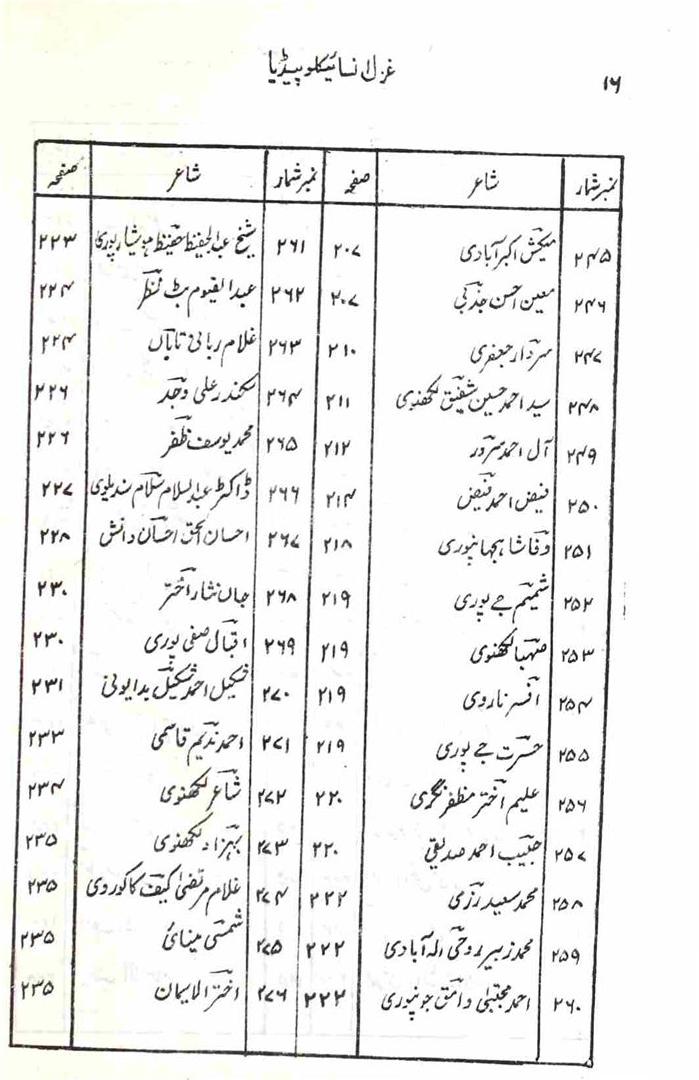 ۱۶
غزل انسائیکلوپیڈیا
نمبر شمار شاعر صفحہ نمبر شمار شاعر صفحہ
۲۴۵ میکش اکبر آبادی ۲۰۷ ۲۶۱ شیخ عبدالحفیظ حفیظ ہوشیارپوری ۲۲۳
۲۴۶ معین احسن جذبی ۲۰۷ ۲۶۲ عبدالقیوم بٹ نظر ۲۲۴
۲۴۷ سردار جعفری ۲۱۰ ۲۶۳ غلام ربانی تاباں ۲۲۴
۲۴۸ سید احمد حسین شفیق لکھنوی ۲۱۱ ۲۶۴ سکندر علی وجد ۲۲۶
۲۴۹ آل احمد سرور ۲۱۲ ۲۶۵ محمد یوسف ظفر ۲۲۶
۲۵۰ فیض احمد فیض ۲۱۴ ۲۶۶ ڈاکٹر عبدالسلام سلام سندیلوی ۲۲۷
۲۵۱ وفا شاہجہانپوری ۲۱۸ ۲۶۷ احسان الحق احسان دانش ۲۲۸
۲۵۲ شمیم جے پوری ۲۱۹ ۲۶۸ جاں نثار اختر ۲۳۰
۲۵۳ صہبا لکھنوی ۲۱۹ ۲۶۹ اقبال صفی پوری ۲۳۰
۲۵۴ افسر ناروی ۲۱۹ ۲۷۰ شکیل احمد شکیل بدایونی ۲۳۱
۲۵۵ حسرت جے پوری ۲۱۹ ۲۷۱ احمد ندیم قاسمی ۲۳۳
۲۵۶ علیم اختر مظفر نگری ۲۲۰ ۲۷۲ شاعر لکھنوی ۲۳۴
۲۵۷ حبیب احمد صدیقی ۲۲۰ ۲۷۳ بہزاد لکھنوی ۲۳۵
۲۵۸ محمد سعید رزمی ۲۲۲ ۲۷۴ غلام مرتضیٰ کیف کاکوروی ۲۳۵
۲۵۹ محمد زبیر روحی الہ آبادی ۲۲۲ ۲۷۵ شمسی مینائی ۲۳۵
۲۶۰ احمد مجتبیٰ وامق جونپوری ۲۲۲ ۲۷۶ اختر الایمان ۲۳۵